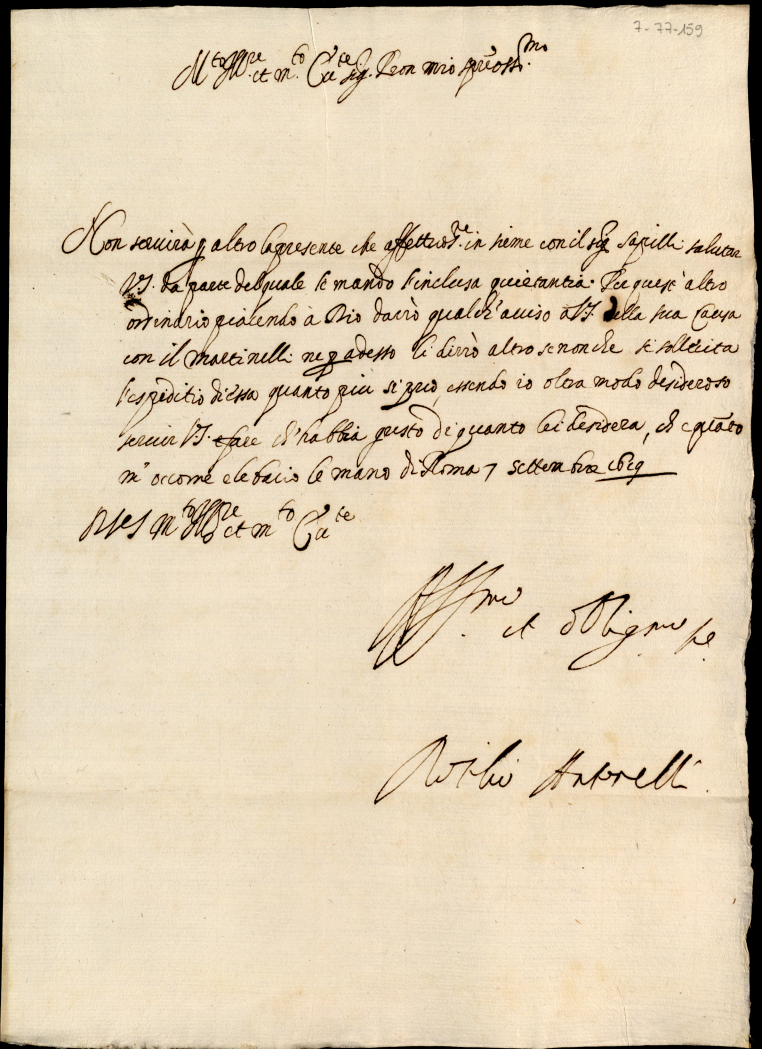 7-77-159
M.to Ill.re et m.to Ecc.te sig. P.ron mio
Non servirà p altro la presente che affettuos.te in sieme con il sig. Sapilli salutar
VS. da parte del quale le mando l'inclusa quietantia. Per quest'altro
ordinario piacendo à Dio darrò qualch'aviso à VS. della sua Causa
con il Martinelli ne p adesso li dirrò altro se non che se sollecita
l'espeditio d'essa quanto più si può, essendo io oltra modo desideroso
servir VS. et fare ch'habbia gusto di quanto lei desidera, ch è quãto
m' occorre e le bacio le mano di Roma 7 settembre
Di VS M.to Ill.re et m.to Ecc.te
Aff.mo et oblig.mo se.
Antonelli